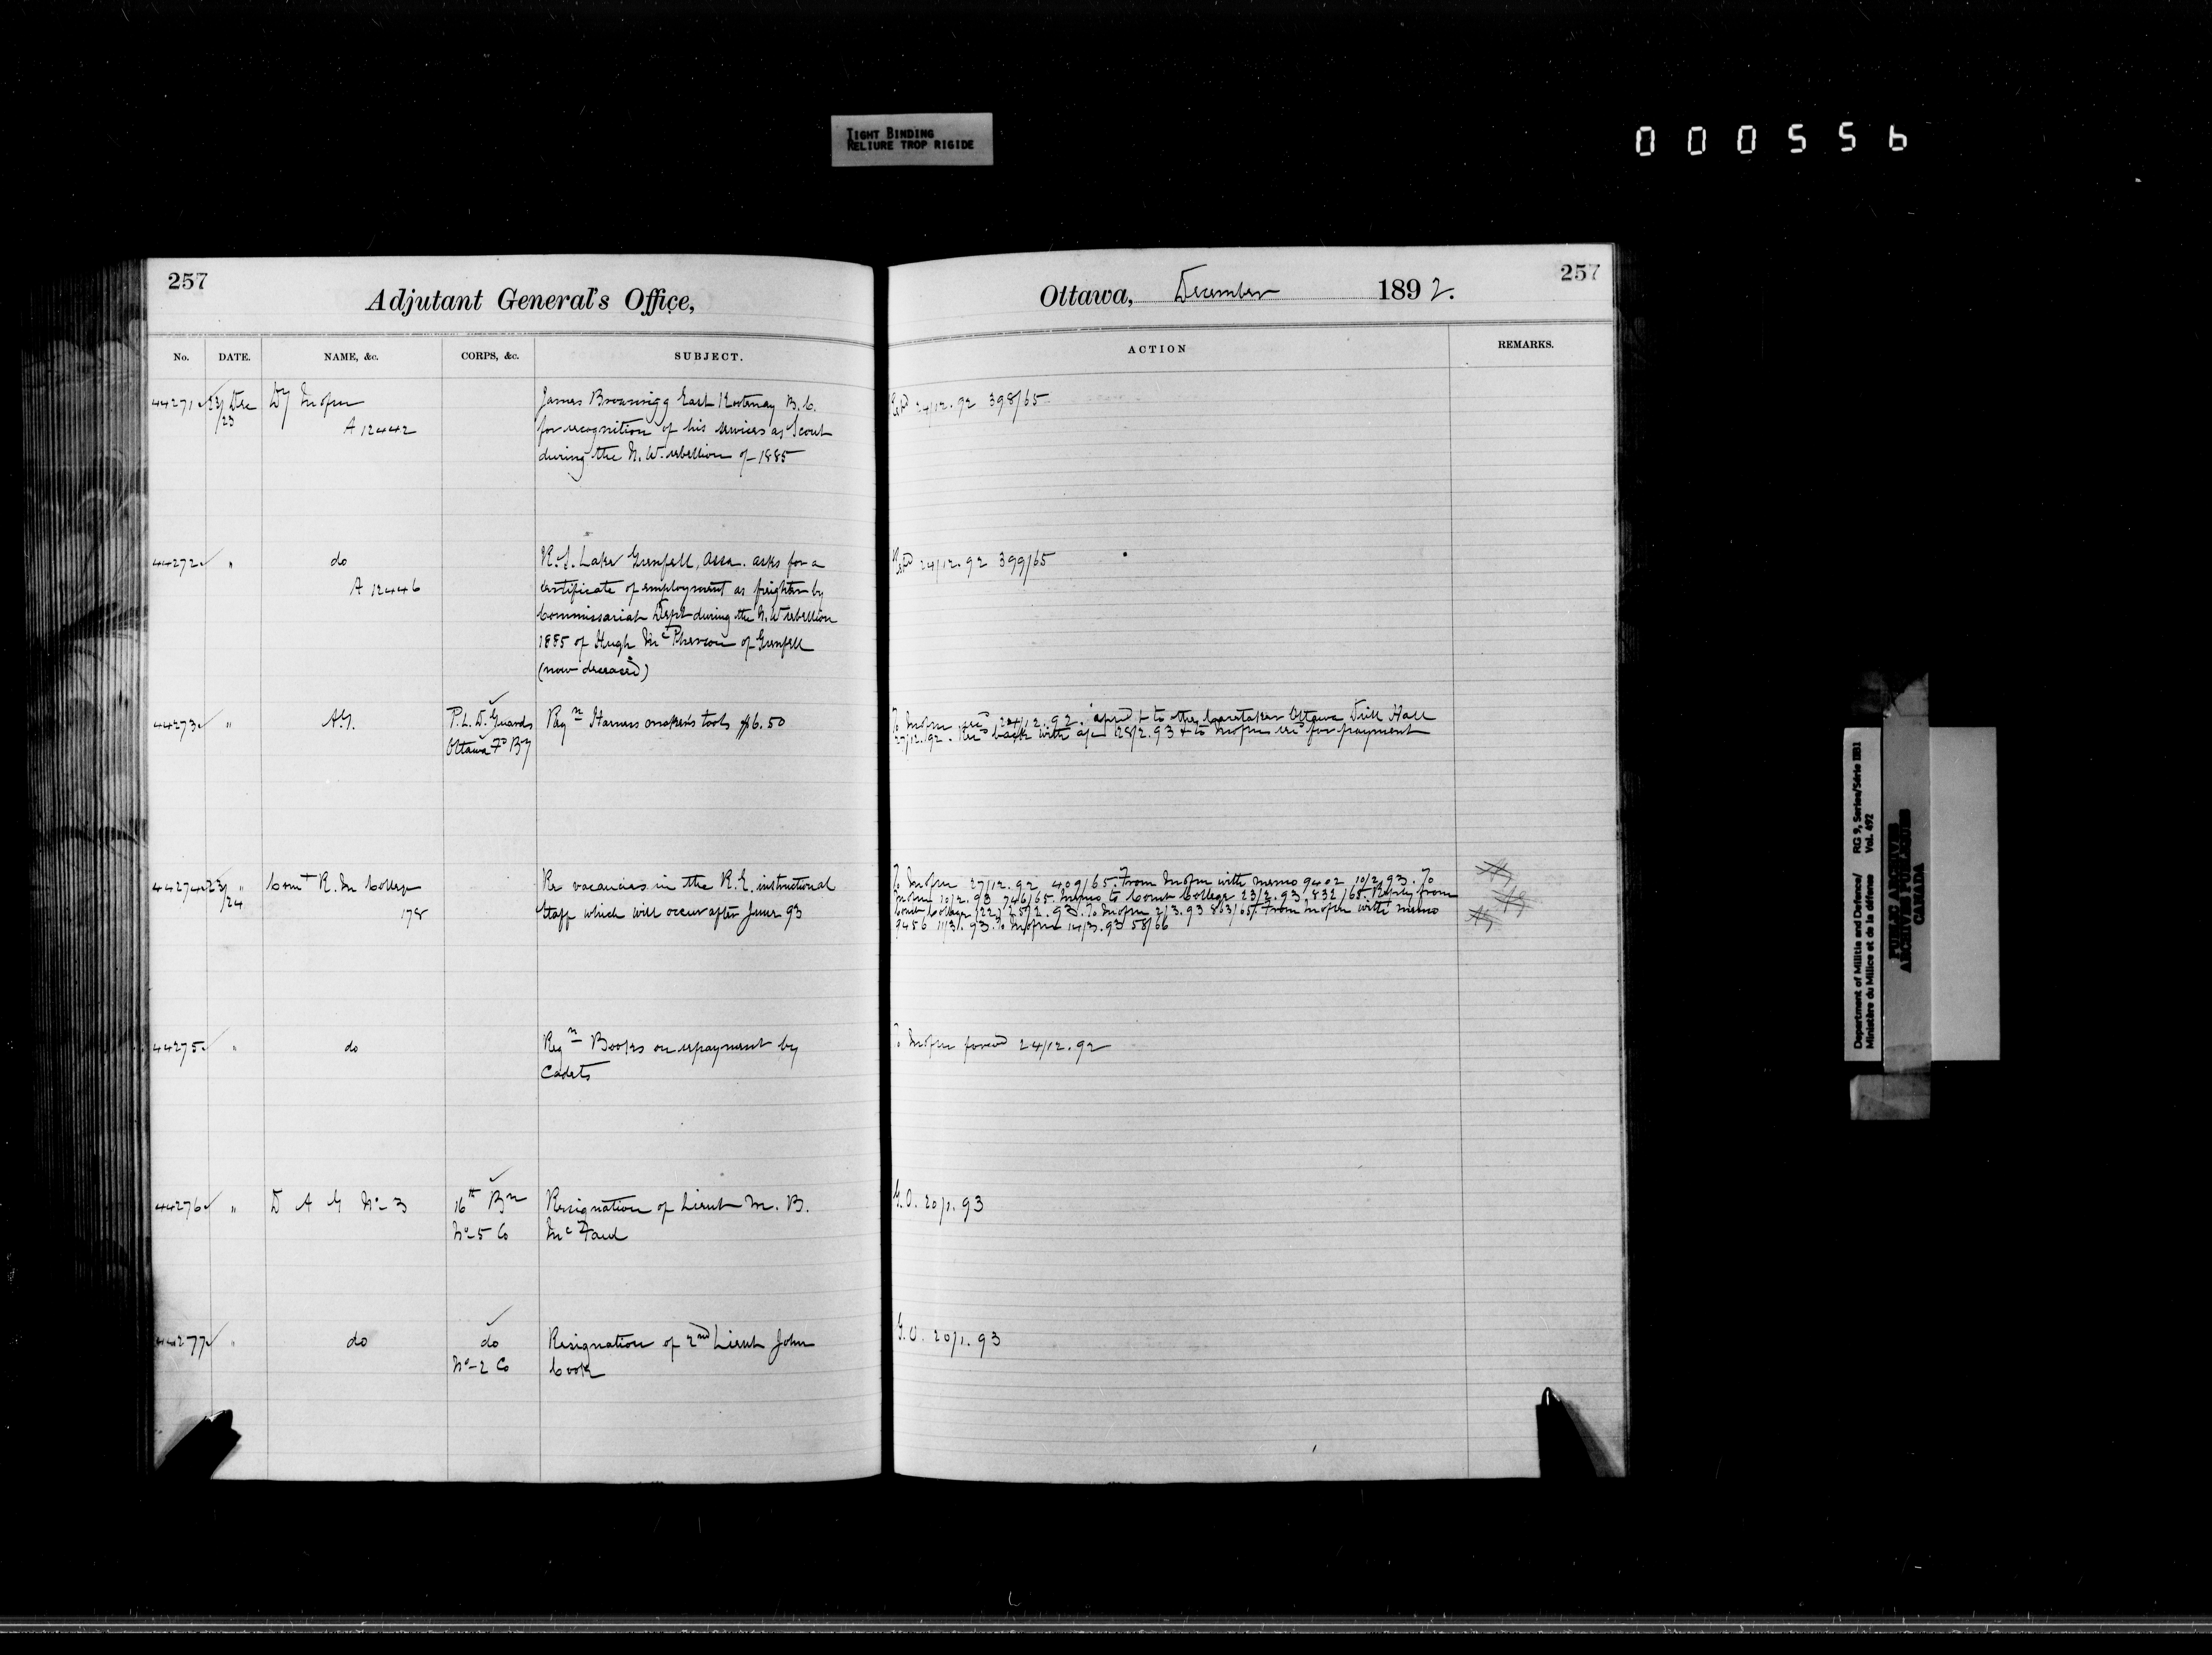 TIGHT BINDING
RELIURE TROP RIGIDE
000556
257
Adjutant General's Office,
No. DATE. NAME, &c. CORPS, &c. SUBJECT.
44271 23/23 Dec Dy Mofm
A 12442
James Brownrigg East Kootenay B.C.
for recognition of his services as Scout
during the N.W. rebellion of 1885
44272 " do
A 12446
R.S. Lake Grenfell, Assa. asks for a
certificate of employment as freighter by
Commissariat Dept during the N.W rebellion
1885 of Hugh McPherson of Grenfell
(now deceased)
44273 " A.G. P.L.D. Guards
Ottawa Fd By
Reqn Harness makers tools $6.50
44274 23/24 " Comt R.M College
178
Re vacancies in the R.E. instructional
Staff which will occur after June 93
44275 " do
Reqn Books on repayment by
Cadets
44276 " D A G No 3 16th Bn
No 5 Co
Resignation of Lieut M. B.
McFaul
44277 " do do
No 2 Co
Resignation of 2nd Lieut John
Cook
257
Ottawa, December 1892.
ACTION REMARKS.
24/12.92 398/65
24/12.92 399/65
To Mofm 24/12.92. & to the Caretaker Ottawa Drill Hall
27/12.92. Recd back with a/c 28/2.93 & to Mofm for payment
To Mofm 27/12.92 409/65. From Mofm with memo 9402 10/2.93. To
Mofm 10/2.93 746/65. Memo to Comt College 23/2.93. 832/65. Reply from
Comt College (22) 25/2.93. To Mofm 2/3.93 863/65. From Mofm with memo
9456 11/3.93. To Mofm 14/3.93 58/66
To Mofm forwd 24/12.92
G.O. 20/1.93
G.O. 20/1.93
Department of Militia and Defence/ RG 9, Series/Série IIB1
Ministère du Milice et de la défense Vol. 492
PUBLIC ARCHIVES
ARCHIVES PUBLIQUES
CANADA